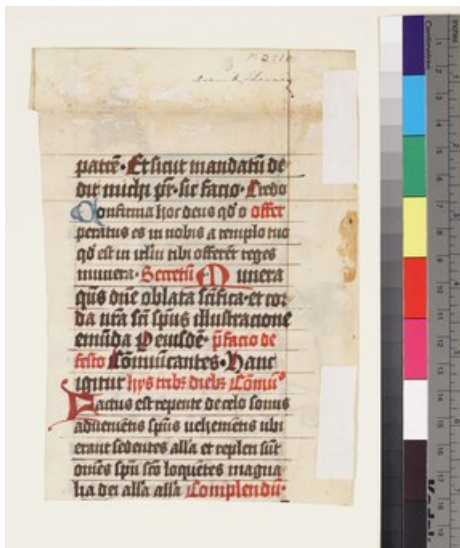 patrē · Et sicut mandatū de
dit michi pr̄ · sic facio · Credo
Confirma hoc deus qd̄ o offer
peratus es in nobis a templo tuo
qd̄ est in irl̄m tibi offerēt reges
munera · Secretū Munera
qs̄ dn̄e oblata sc̄ifica · et cor
da nr̄a sc̄i sp̄us illustracione
emūda P eiusdē · p̄facio de
festo Cōmūicantes · Hanc
igitur hys tribȝ diebȝ Cōmūo
Factus est repente de celo sonus
adveniētis sp̄us vehemētis ubi
erant sedentes all̄a et repleti sūt
om̄es sp̄u sc̄o loquētes magna
lia dei all̄a all̄a Complendū ·